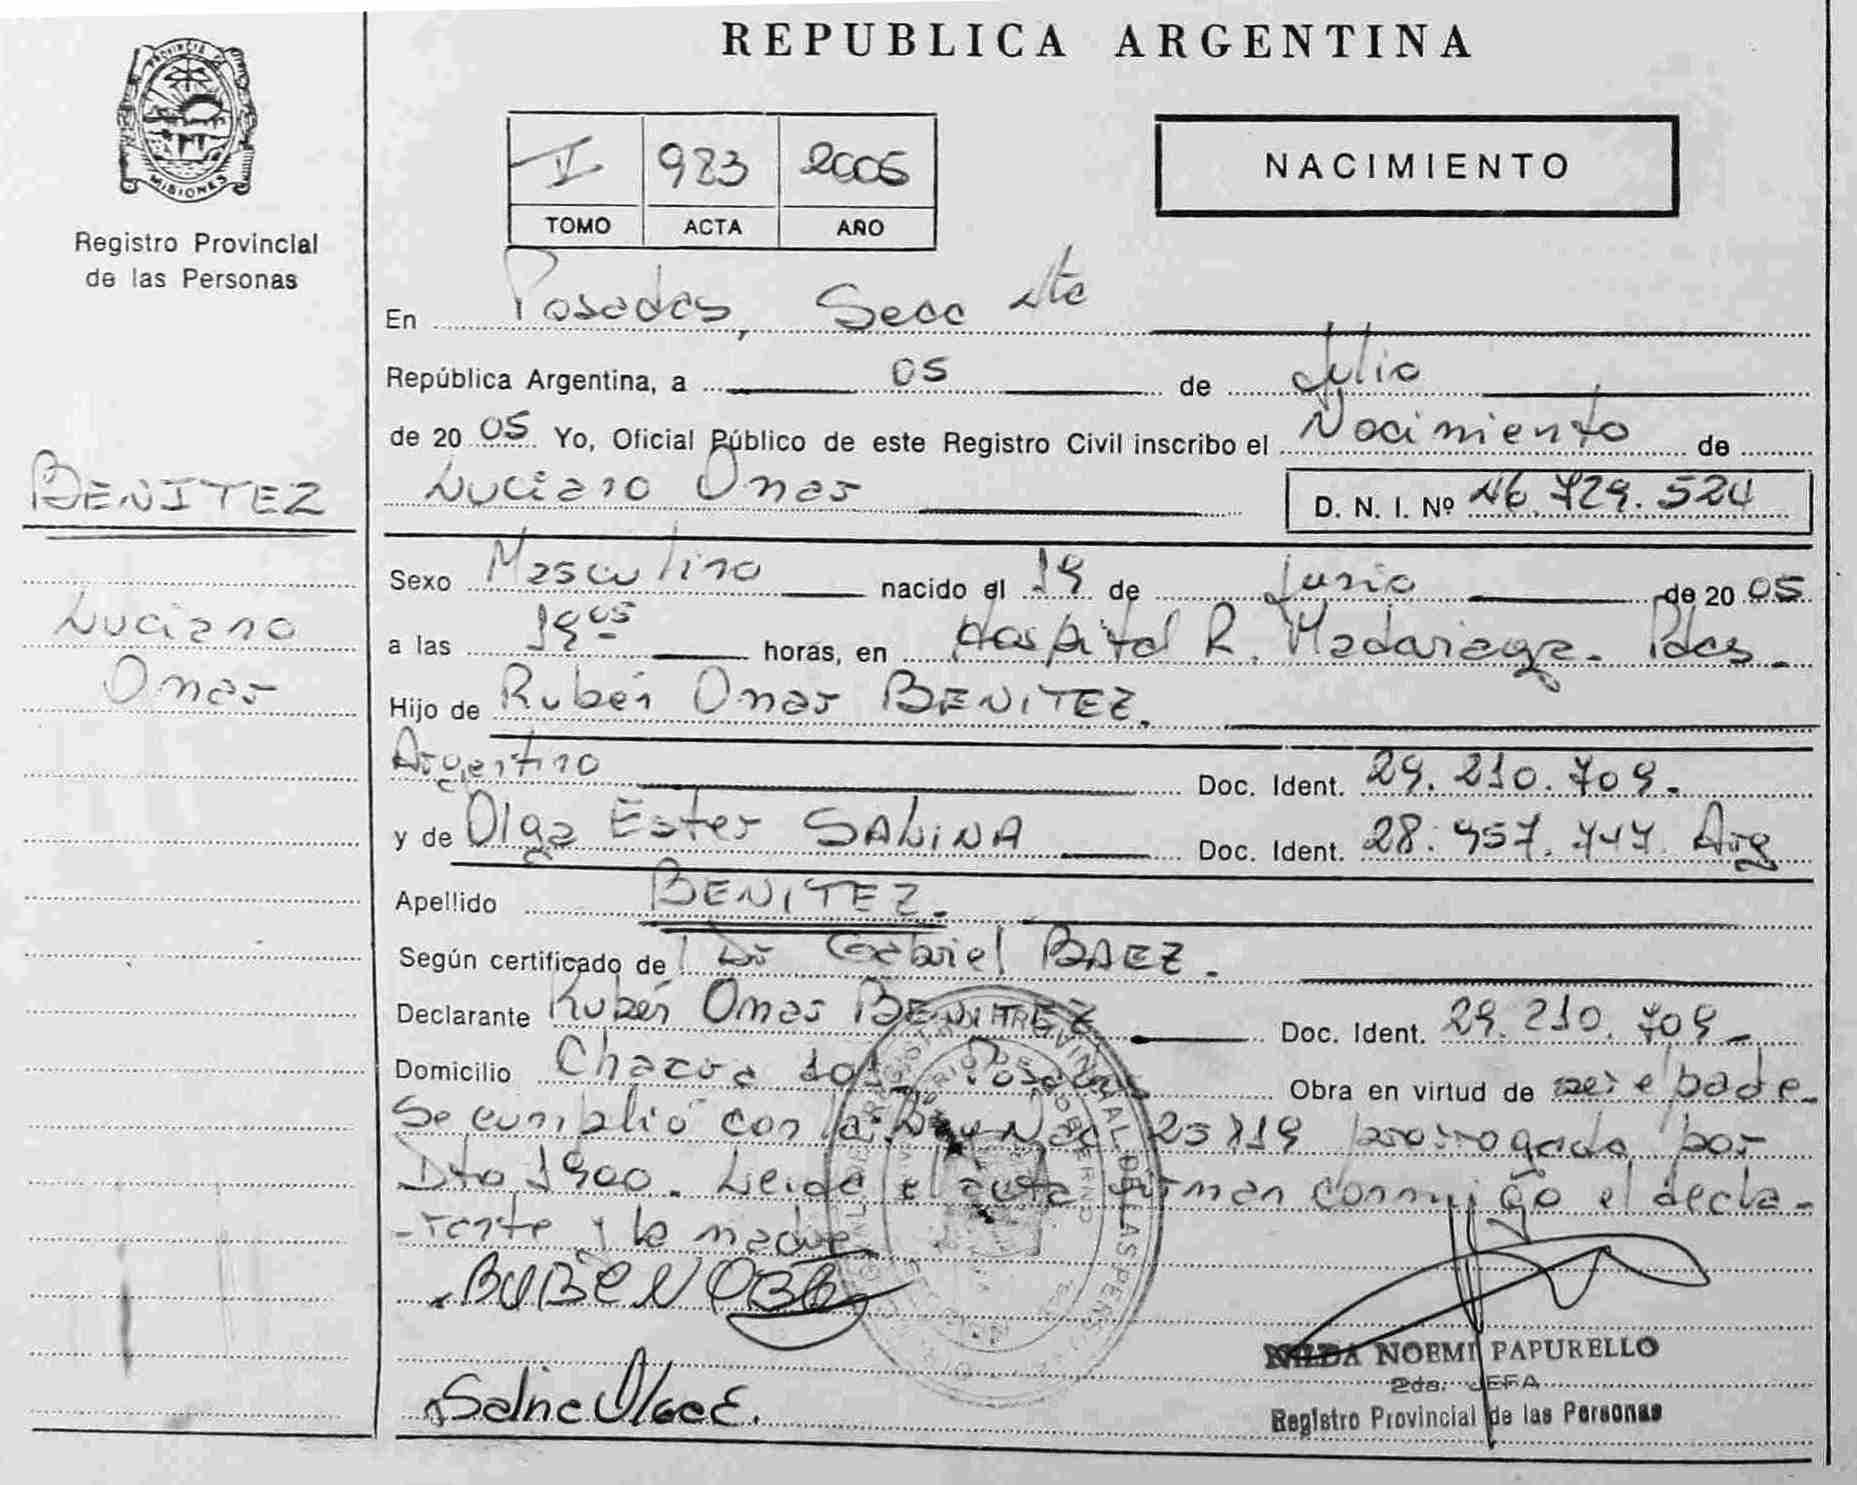 REPUBLICA ARGENTINA
PROVINCIA DE
MISIONES
Registro Provincial
de las Personas
983 2005
TOMO ACTA AÑO
NACIMIENTO
En Posadas, Secc
República Argentina, a 05 de Julio
de 20 05 Yo, Oficial Público de este Registro Civil inscribo el Nacimiento de
Luciano Omar D. N. I. Nº 46.729.524
BENITEZ
Luciano
Omar
Sexo Masculino nacido el 19 de Junio de 20 05
a las 19 05 horas, en Hospital R. Madariaga. Pdas.
Hijo de Rubén Omar BENITEZ.
Argentino Doc. Ident. 29.210.709.
y de Olga Ester SALINA Doc. Ident. 28.957.747. Arg
Apellido BENITEZ.
Según certificado de Dr Gabriel BAEZ.
Declarante Rubén Omar BENITEZ Doc. Ident. 29.210.709.
Domicilio Chacra 101 Posadas Obra en virtud de ser el padre.
Se cumplió con la Ley Nac 25819 prorrogada por
Dto 1900. Leida el acta firman conmigo el decla-
-rante y la madre
Salina Olga E.
NILDA NOEMI PAPURELLO
2da. JEFA
Registro Provincial de las Personas